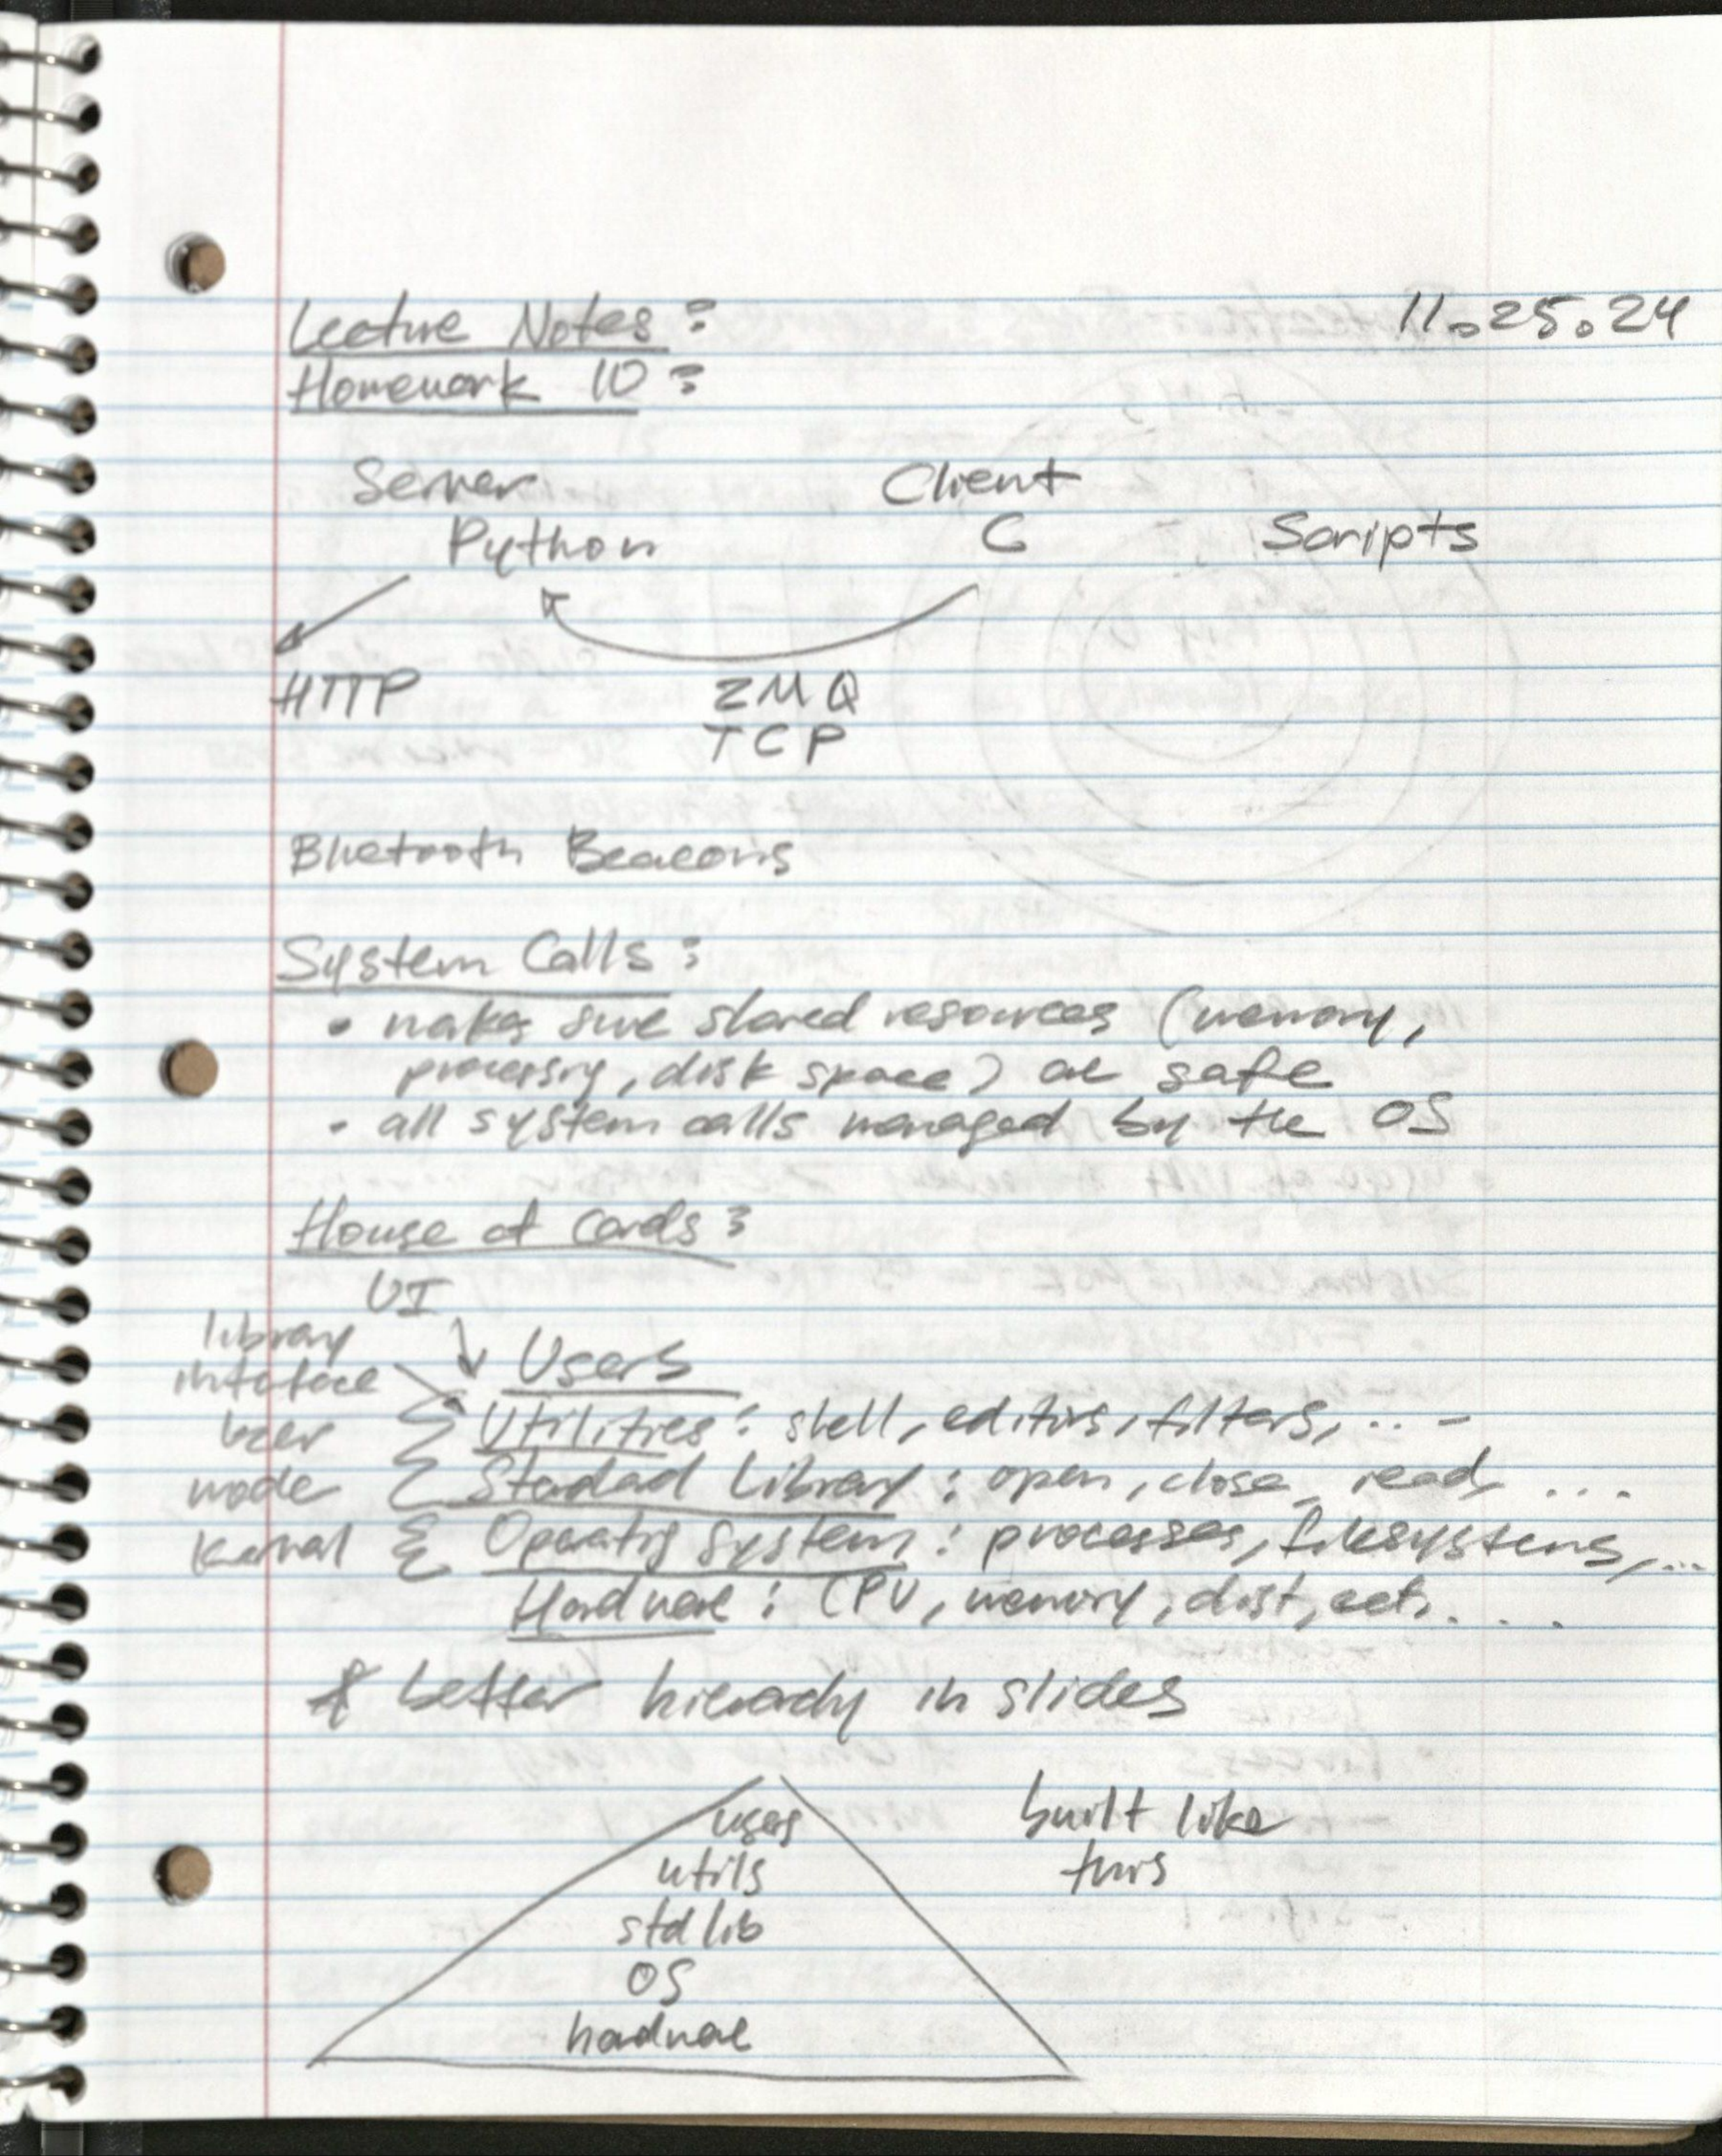 Lecture Notes: 11.25.24
Homework 10:
Server Client
Python C Scripts
HTTP ZMQ
TCP
Bluetooth Beacons
System Calls:
• makes sure shared resources (memory,
processing, disk space) are safe
• all system calls managed by the OS
House of Cards:
UI
library
interface
Users
user
Utilities: shell, editors, filters, ...
mode Standard Library: open, close, read, ...
Kernal Operating System: processes, filesystems, ...
Hardware: CPU, memory, disk, ect. ...
* better hierarchy in slides
users built like
utils this
std lib
OS
hardware